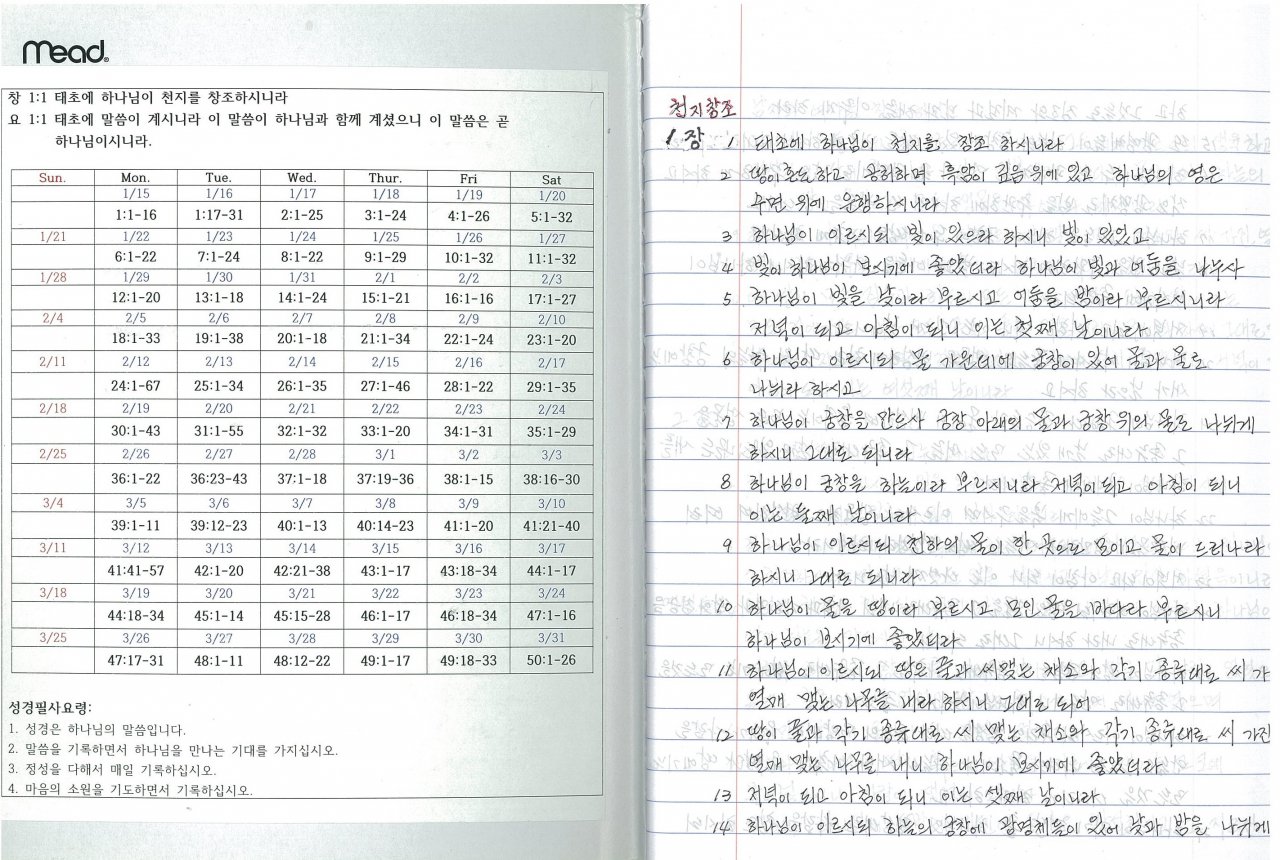 Mead
창 1:1 태초에 하나님이 천지를 창조하시니라
요 1:1 태초에 말씀이 계시니라 이 말씀이 하나님과 함께 계셨으니 이 말씀은 곧
하나님이시니라.
Sun. Mon. Tue. Wed. Thur. Fri Sat
1/15 1/16 1/17 1/18 1/19 1/20
1:1-16 1:17-31 2:1-25 3:1-24 4:1-26 5:1-32
1/21 1/22 1/23 1/24 1/25 1/26 1/27
6:1-22 7:1-24 8:1-22 9:1-29 10:1-32 11:1-32
1/28 1/29 1/30 1/31 2/1 2/2 2/3
12:1-20 13:1-18 14:1-24 15:1-21 16:1-16 17:1-27
2/4 2/5 2/6 2/7 2/8 2/9 2/10
18:1-33 19:1-38 20:1-18 21:1-34 22:1-24 23:1-20
2/11 2/12 2/13 2/14 2/15 2/16 2/17
24:1-67 25:1-34 26:1-35 27:1-46 28:1-22 29:1-35
2/18 2/19 2/20 2/21 2/22 2/23 2/24
30:1-43 31:1-55 32:1-32 33:1-20 34:1-31 35:1-29
2/25 2/26 2/27 2/28 3/1 3/2 3/3
36:1-22 36:23-43 37:1-18 37:19-36 38:1-15 38:16-30
3/4 3/5 3/6 3/7 3/8 3/9 3/10
39:1-11 39:12-23 40:1-13 40:14-23 41:1-20 41:21-40
3/11 3/12 3/13 3/14 3/15 3/16 3/17
41:41-57 42:1-20 42:21-38 43:1-17 43:18-34 44:1-17
3/18 3/19 3/20 3/21 3/22 3/23 3/24
44:18-34 45:1-14 45:15-28 46:1-17 46:18-34 47:1-16
3/25 3/26 3/27 3/28 3/29 3/30 3/31
47:17-31 48:1-11 48:12-22 49:1-17 49:18-33 50:1-26
성경필사요령:
1. 성경은 하나님의 말씀입니다.
2. 말씀을 기록하면서 하나님을 만나는 기대를 가지십시오.
3. 정성을 다해서 매일 기록하십시오.
4. 마음의 소원을 기도하면서 기록하십시오.
천지창조
1장 1 태초에 하나님이 천지를 창조 하시니라
2 땅이 혼돈하고 공허하며 흑암이 깊음 위에 있고 하나님의 영은
수면 위에 운행하시니라
3 하나님이 이르시되 빛이 있으라 하시니 빛이 있었고
4 빛이 하나님이 보시기에 좋았더라 하나님이 빛과 어둠을 나누사
5 하나님이 빛을 낮이라 부르시고 어둠을 밤이라 부르시니라
저녁이 되고 아침이 되니 이는 첫째 날이니라
6 하나님이 이르시되 물 가운데에 궁창이 있어 물과 물로
나뉘라 하시고
7 하나님이 궁창을 만드사 궁창 아래의 물과 궁창 위의 물로 나뉘게
하시니 그대로 되니라
8 하나님이 궁창을 하늘이라 부르시니라 저녁이 되고 아침이 되니
이는 둘째 날이니라
9 하나님이 이르시되 천하의 물이 한 곳으로 모이고 뭍이 드러나라
하시니 그대로 되니라
10 하나님이 뭍을 땅이라 부르시고 모인 물을 바다라 부르시니
하나님이 보시기에 좋았더라
11 하나님이 이르시되 땅은 풀과 씨맺는 채소와 각기 종류대로 씨 가
열매 맺는 나무를 내라 하시니 그대로 되어
12 땅이 풀과 각기 종류대로 씨 맺는 채소와 각기 종류대로 씨 가진
열매 맺는 나무를 내니 하나님이 보시기에 좋았더라
13 저녁이 되고 아침이 되니 이는 셋째 날이니라
14 하나님이 이르시되 하늘의 궁창에 광명체들이 있어 낮과 밤을 나뉘게